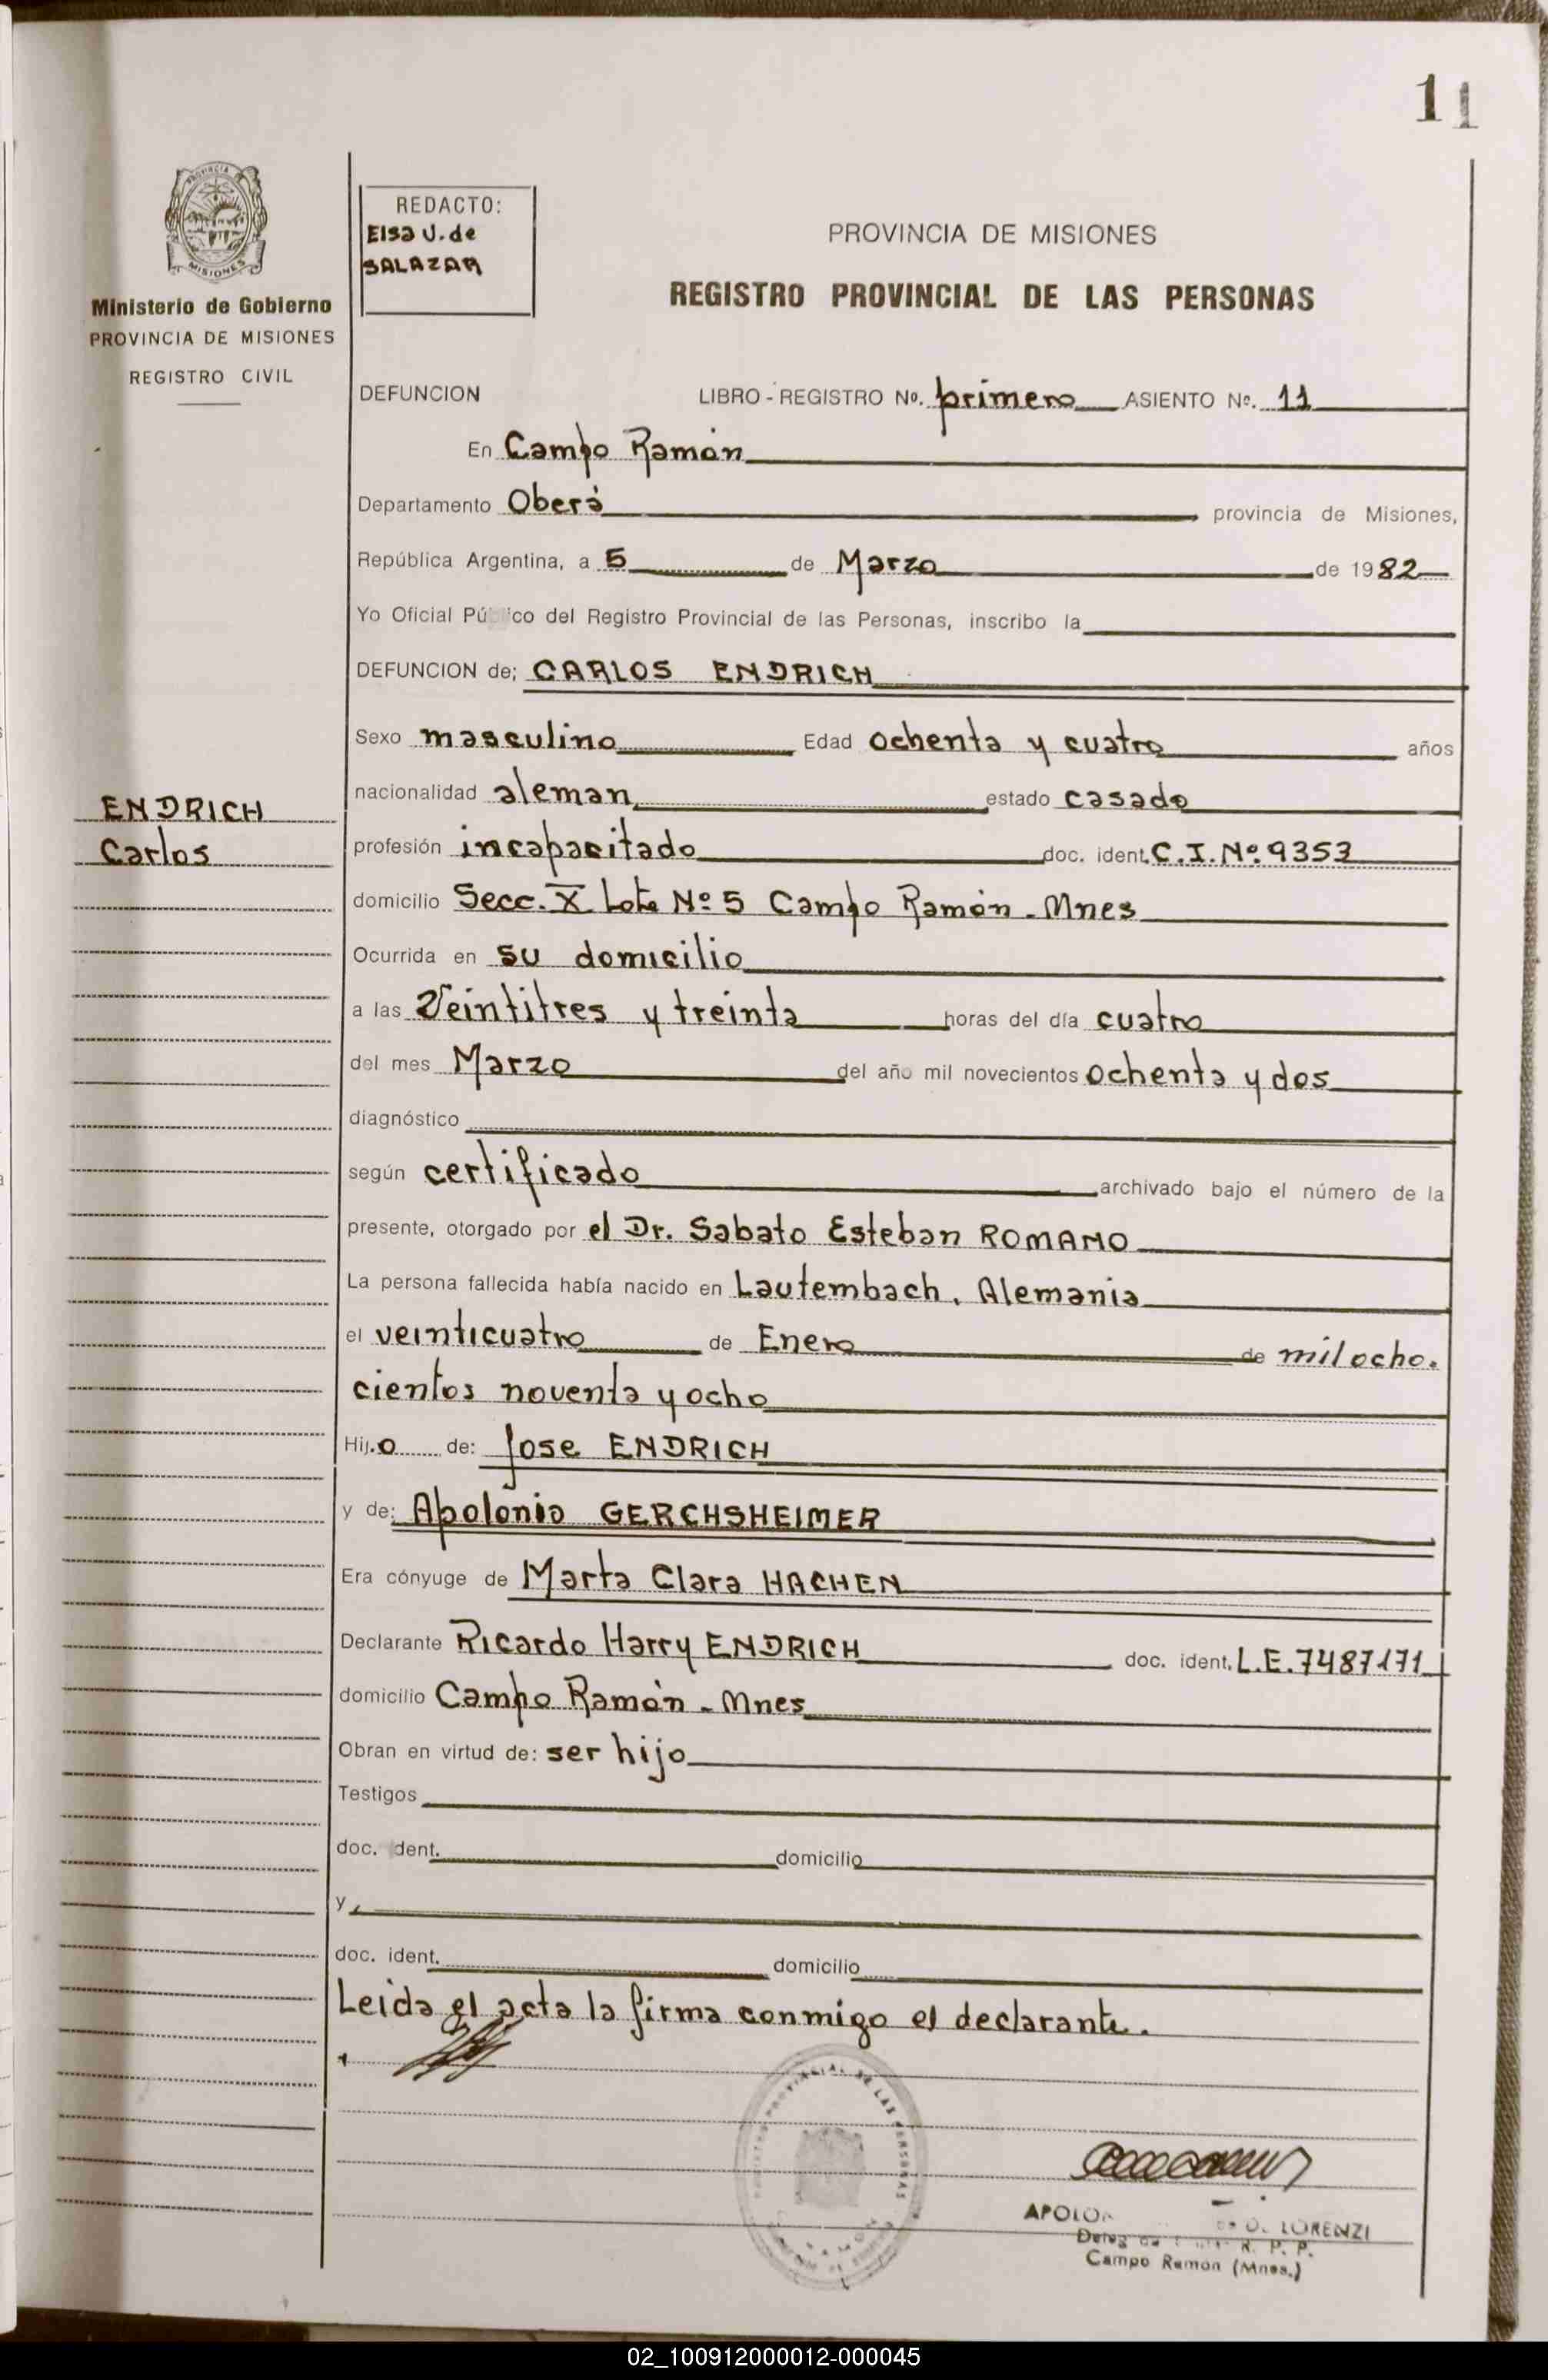 11
PROVINCIA
MISIONES
Ministerio de Gobierno
PROVINCIA DE MISIONES
REGISTRO CIVIL
REDACTO:
Elsa U. de
SALAZAR
PROVINCIA DE MISIONES
REGISTRO PROVINCIAL DE LAS PERSONAS
DEFUNCION LIBRO - REGISTRO Nº. primero ASIENTO Nº. 11
En Campo Ramón
Departamento Oberá provincia de Misiones,
República Argentina, a 5 de Marzo de 1982
Yo Oficial Público del Registro Provincial de las Personas, inscribo la
DEFUNCION de; CARLOS ENDRICH
Sexo masculino Edad ochenta y cuatro años
nacionalidad aleman estado casado
ENDRICH
Carlos
profesión incapacitado doc. ident. C.I. Nº. 9353
domicilio Secc. X Lote Nº 5 Campo Ramón - Mnes
Ocurrida en su domicilio
a las Veintitres y treinta horas del día cuatro
del mes Marzo del año mil novecientos ochenta y dos
diagnóstico
según certificado archivado bajo el número de la
presente, otorgado por el Dr. Sabato Esteban ROMANO
La persona fallecida había nacido en Lautembach, Alemania
el veinticuatro de Enero de mil ocho.
cientos noventa y ocho
Hij.o de: Jose ENDRICH
y de: Apolonia GERCHSHEIMER
Era cónyuge de Marta Clara HACHEN
Declarante Ricardo Harry ENDRICH doc. ident. L.E. 7487171
domicilio Campo Ramón - Mnes
Obran en virtud de: ser hijo
Testigos
doc. dent. domicilio
y
doc. ident. domicilio
Leida el acta la firma conmigo el declarante.
PROVINCIAL DE LAS PERSONAS
D. LORENZI
R. P. P.
Campo Ramon (Mnes.)
02_100912000012-000045